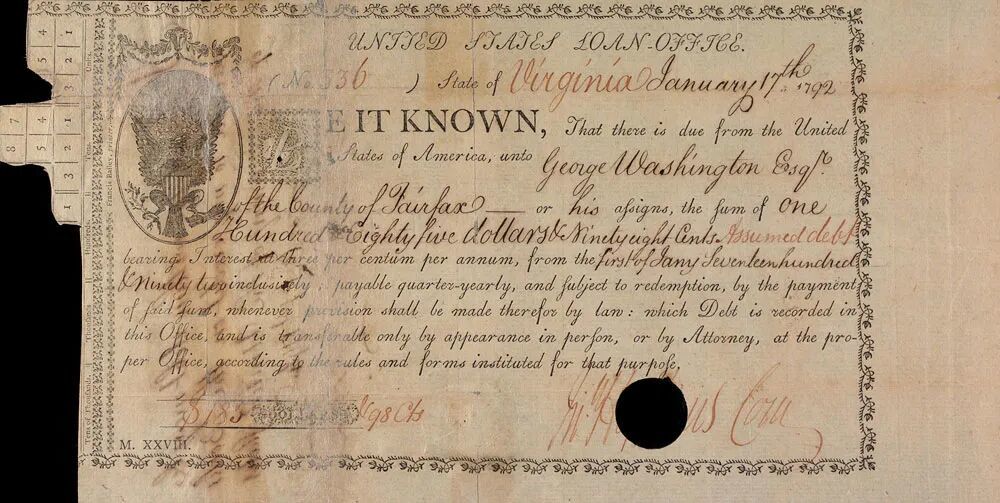 UNITED STATES LOAN-OFFICE.
(No. 336 ) State of Virginia January 17th 1792
BE IT KNOWN, That there is due from the United
States of America, unto George Washington Esqr.
of the County of Fairfax — or his aſſigns, the ſum of one
Hundred & Eighty five dollars & Ninety eight Cents Assumed debt
bearing Intereſt at three per centum per annum, from the first of Jany Seventeen hundred
& Ninety two incluſively, payable quarter-yearly, and ſubject to redemption, by the payment
of ſaid ſum, whenever proviſion ſhall be made therefor by law: which Debt is recorded in
this Office, and is transferable only by appearance in perſon, or by Attorney, at the pro-
per Office, according to the rules and forms inſtituted for that purpoſe.
$185 98 Cts
Com
M. XXVIII.
Units.
Hundreds.
Thouſands.
Tens of Thouſands.
Francis Bailey
4 2
5 1
7 4 2
8 5 1
1 3